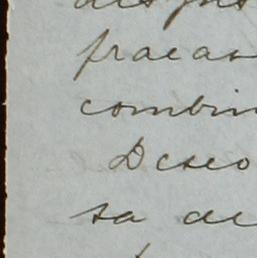 fracas
combin
Deseo
sa de